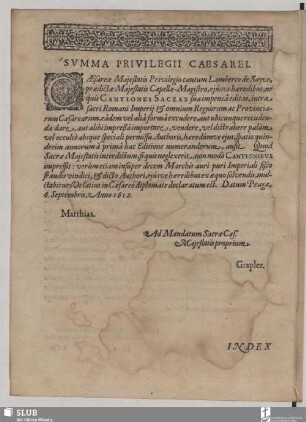 SVMMA PRIVILEGII CAESAREI.
CAEsareæ Majestatis Privilegio cautum Lamberto de Sayve,
prædictæ Majestatis Capellæ-Magistro, ejúsve hæredibus, ne
quis CANTIONES SACRAS sua impensâ editas, intra
sacri Romani Imperij & omnium Regnorum ac Provincia-
rum Cæsarearum, eâdem vel aliâ formâ excudere, aut ubicunque recuden-
da dare, aut alibi impressa importare, vendere, vel distrahere palam
vel occultè absque speciali permissu Authoris, hæredúmve ejus, spatio quin-
decim annorum à prima hac Editione numerandorum, ausit. Quod
Sacræ Majestatis interdictum, si quis neglexerit, non modò CANTIONIBUS
impressis: verùm etiam insuper decem Marchis auri puri Imperiali fisco
& dicto Authori, ejúsve hæredibus ex æquo solvendis, mul-
ctabitur; Ut latius in Cæsareo diplomate declaratum est. Datum Pragæ,
6. Septembris, Anno 1612.
Matthias.
Ad Mandatum Sacræ Cæs.
Majestatis proprium.
INDEX
SLUB
Wir führen Wissen.